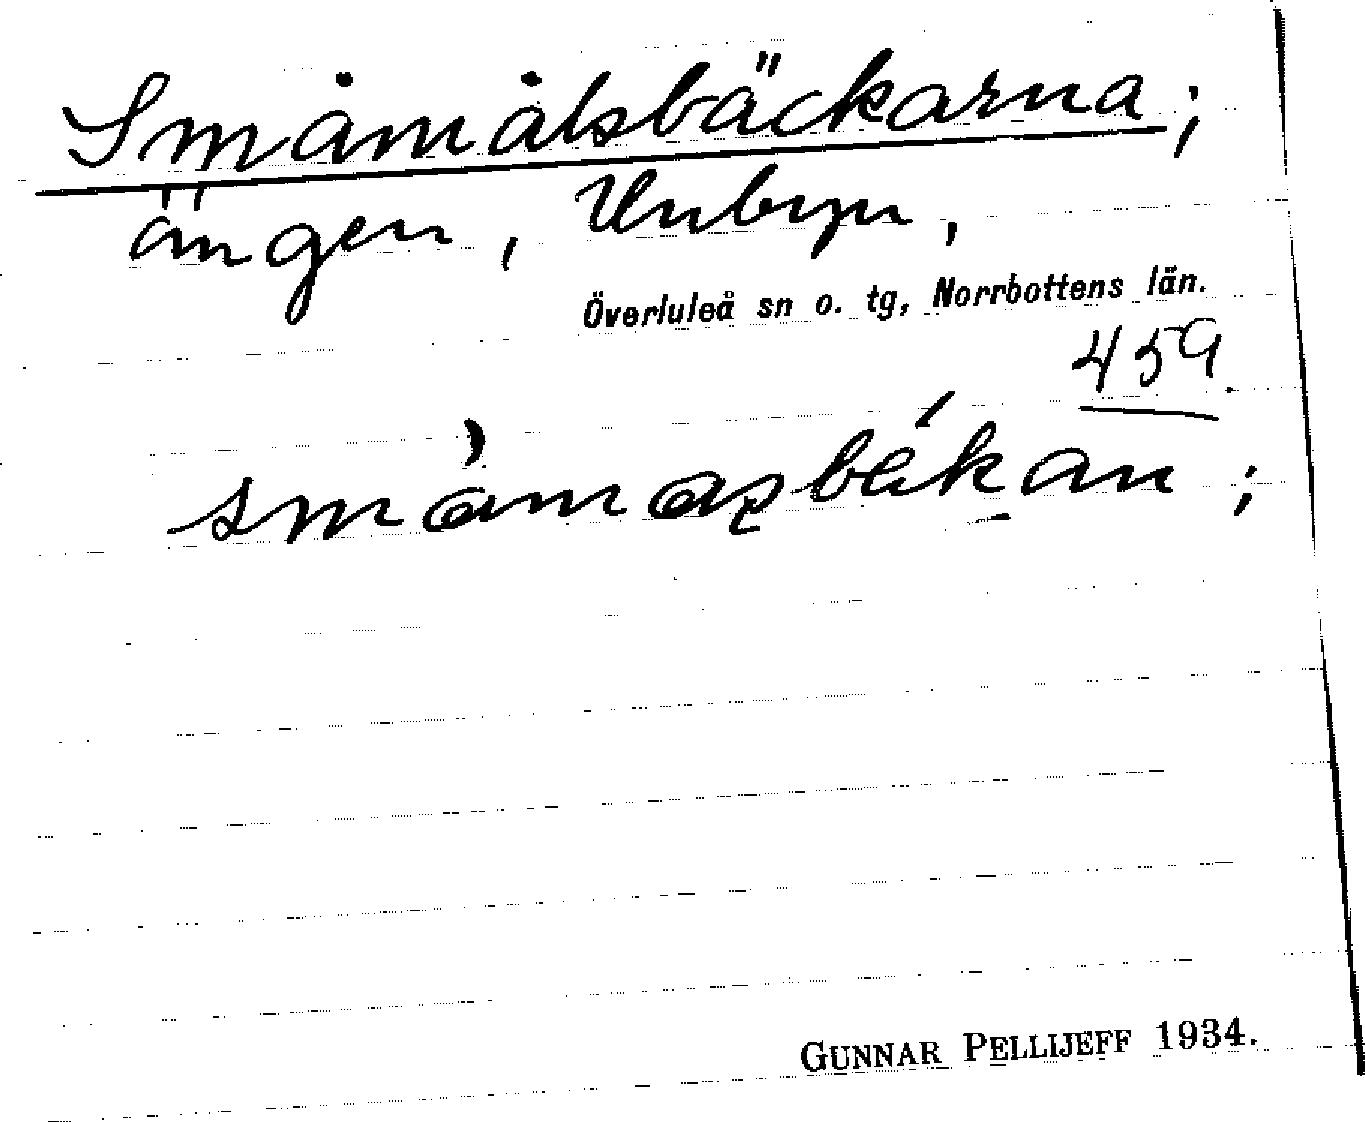 Småmålsbäckarna;
ängen, Unbyn,
Överluleå sn o. tg, Norrbottens län.
459.
GUNNAR PELLIJEFF 1934.